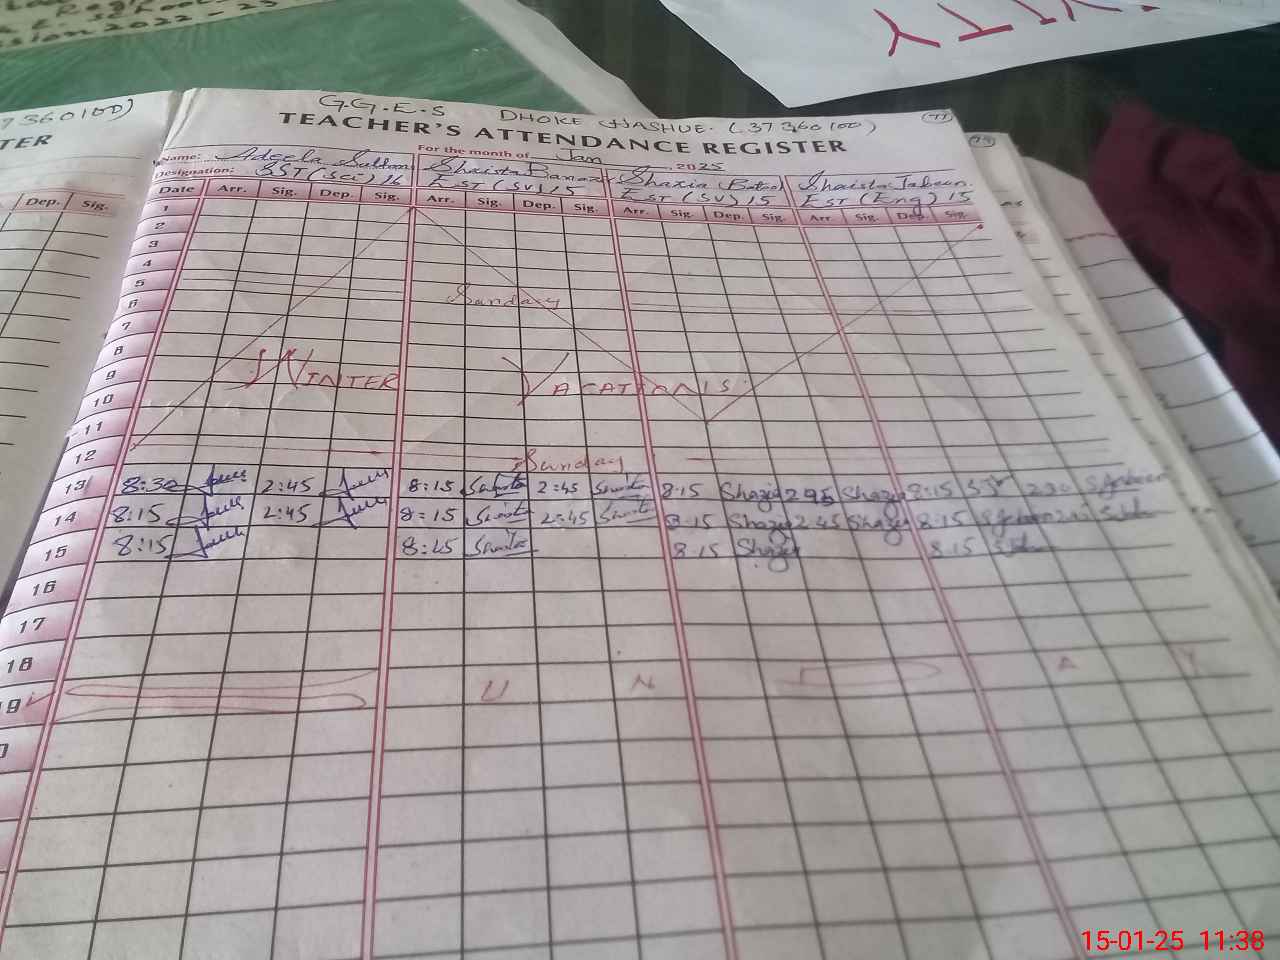 session 2022-23
G.G.E.S DHOKE HASHUE. (37360100)
TEACHER'S ATTENDANCE REGISTER
For the month of Jan 2025
Name: Adeela Sultan Shaista Shazia Batool Shaista Jabeen.
Designation: SST (sci) 16 EST (SV) 15 EST (SV) 15 EST (Eng) 15
Date Arr. Sig. Dep. Sig. Arr. Sig. Dep. Sig. Arr. Sig. Dep. Sig. Arr. Sig. Dep. Sig.
1
2
3
4
5 Sunday
6
7
8
9 WINTER VACATIONS.
10
11
12 Sunday
13 8:30 2:45 8:15 2:45 8.15 Shazia 2.45 Shazia 8:15
14 8:15 2:45 8:15 2:45 8.15 Shazia 2.45 Shazia 8.15
15 8:15 8:15 8.15 Shazia 8.15
16
17
18
19 U N A Y
REGISTER
Dep. Sig.
15-01-25 11:38